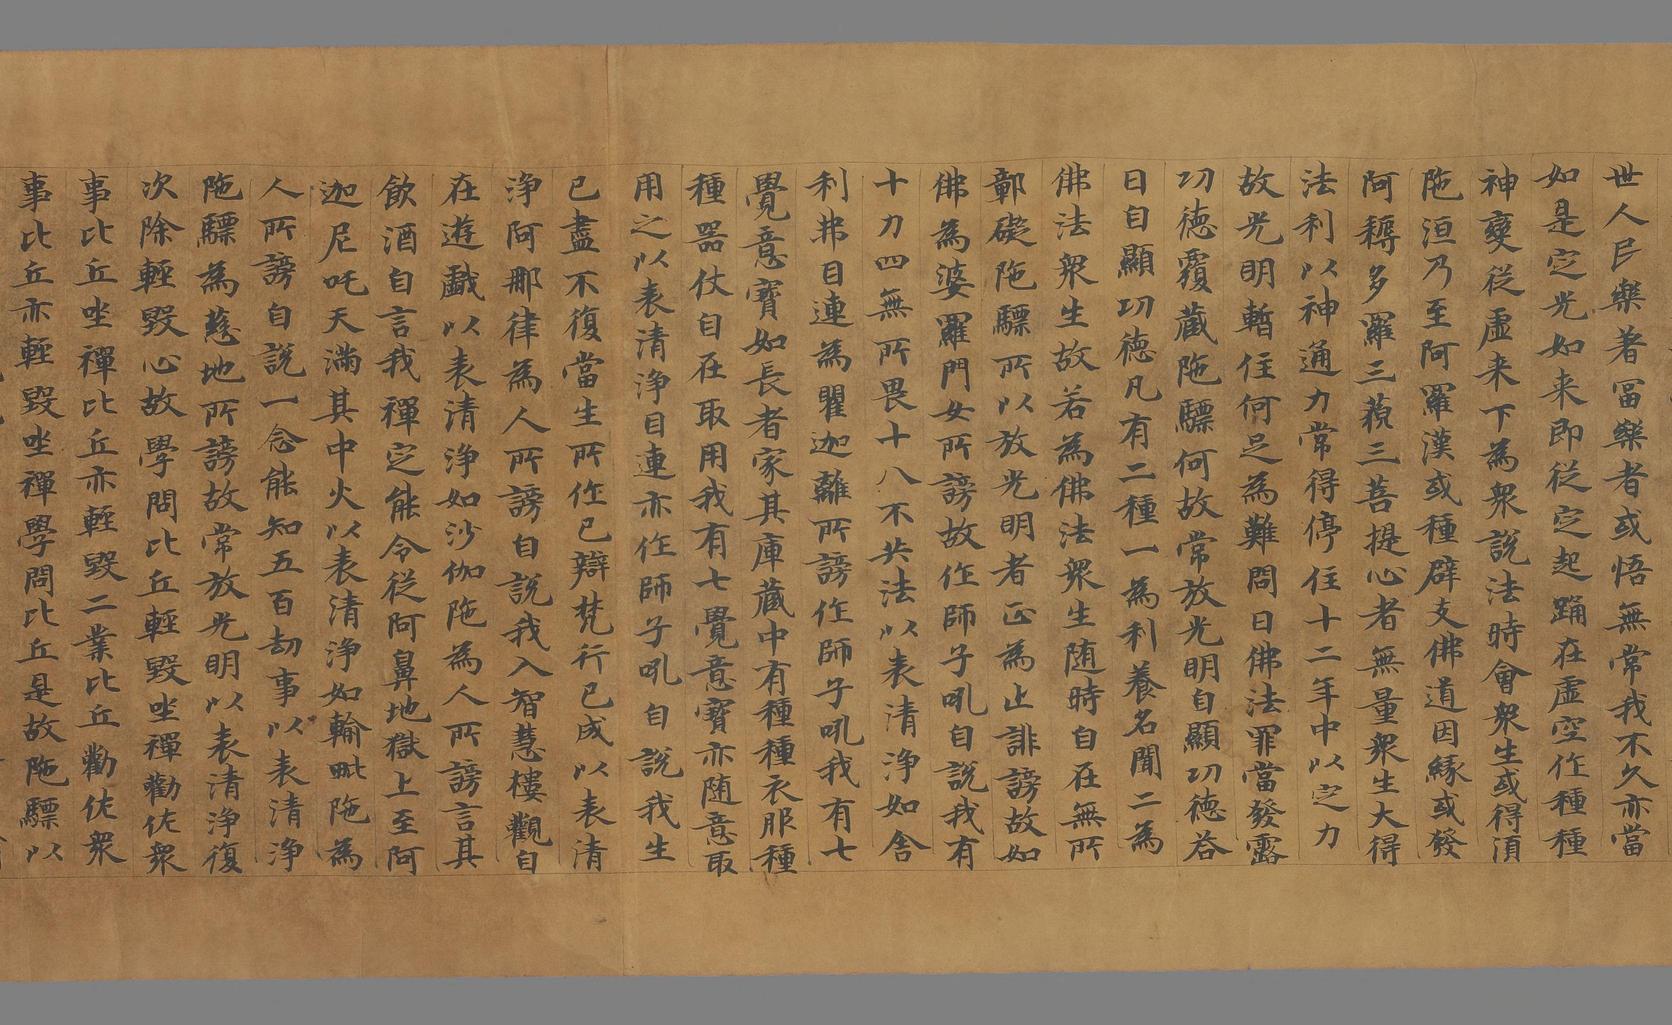 世人民樂著冨樂者或悟無常我不久亦當
如是定光如来即従定起踊在虚空作種種
神變従虚来下為衆說法時會衆生或得湏
陁洹乃至阿羅漢或種辟支佛道因緣或發
阿耨多羅三藐三菩提心者無量衆生大得
法利以神通力常得停住十二年中以定力
故光明暫住何足為難問曰佛法罪當發露
功徳覆藏陁驃何故常放光明自顯功徳荅
曰自顯功徳凡有二種一為利養名聞二為
佛法衆生故若為佛法衆生随時自在無所
鄣礙陁驃所以放光明者正為止誹謗故如
佛為婆羅門女所謗故作師子吼自說我有
十力四無所畏十八不共法以表清浄如舎
利弗目連為瞿迦離所謗作師子吼我有七
覺意寶如長者家其庫藏中有種種衣服種
種器仗自在取用我有七覺意寶亦随意取
用之以表清浄目連亦作師子吼自說我生
已盡不復當生所作已辯梵行已成以表清
浄阿那律為人所謗自說我入智慧樓觀自
在遊戯以表清浄如沙伽陁為人所謗言其
飲酒自言我禪定能令従阿鼻地獄上至阿
迦尼吒天滿其中火以表清浄如輸毗陁為
人所謗自說一念能知五百劫事以表清浄
陁驃為慈地所謗故常放光明以表清浄復
次除輕毀心故學問比丘輕毀坐禪勸佐衆
事比丘坐禪比丘亦輕毀二業比丘勸佐衆
事比丘亦輕毀坐禪學問比丘是故陁驃以